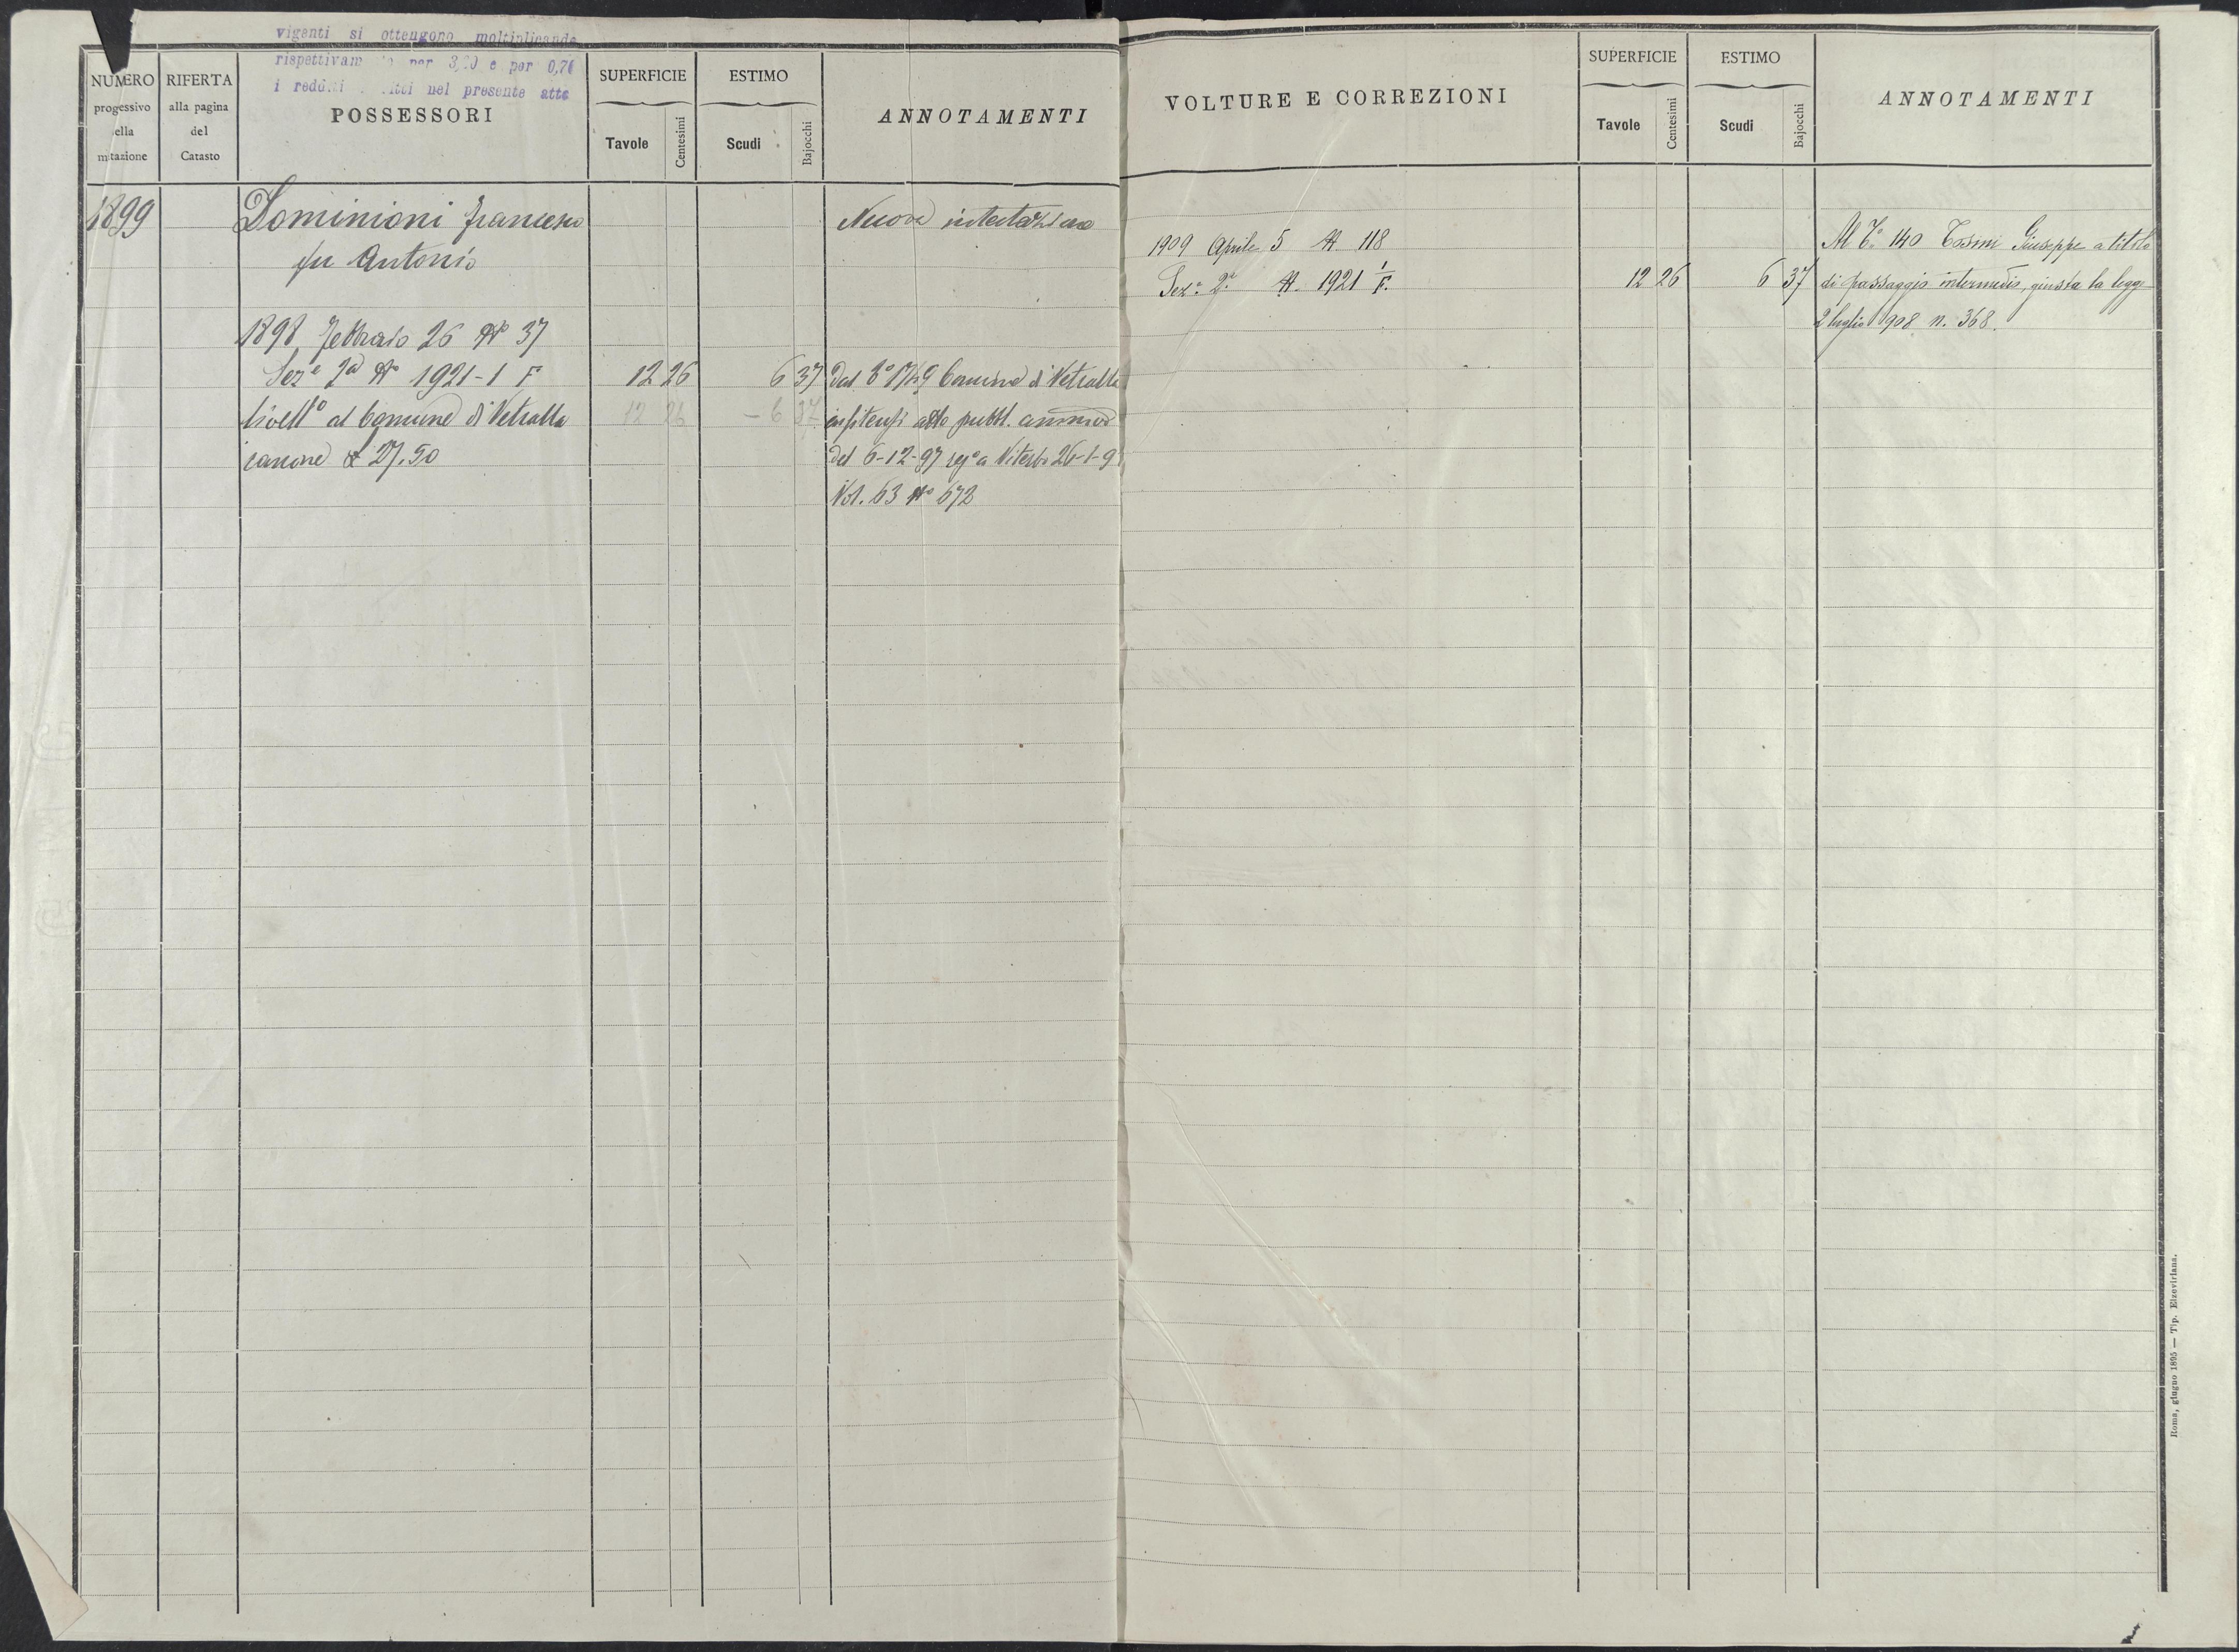 viganti si ottengono moltiplicando
rispettivam per 3,20 e per 0,76
i reddi nel presente atto
NUMERO
progessivo
della
mutazione
RIFERTA
alla pagina
del
Catasto
POSSESSORI
SUPERFICIE
Tavole
Centesimi
ESTIMO
Scudi
Bajocchi
ANNOTAMENTI
1899 Dominioni Francesco Nuova intestazione
fu Antonio
1898 Febbraio 26 No 37
Seze 2a No 1921-1 F 12 26 6 37 Dal To Comune di Vetralla
livello al Comune di Vetralla 12 26 - 6 37 enfiteusi atto pubbl. ammvo
canone £ 27.50 del 6-12-97 rego a Viterbo 26-1-9
Vol. 63 No 672
VOLTURE E CORREZIONI
SUPERFICIE
Tavole
Centesimi
ESTIMO
Scudi
Bajocchi
ANNOTAMENTI
1909 Aprile 5 N. 118 Al To 140 Tosini Giuseppe a titolo
Seze 2a N. 1921 1/F. 12 26 6 37 di passaggio intermedio, giusta la legge
2 luglio 1908 n. 368.
Roma, giugno 1895 — Tip. Elzeviriana.